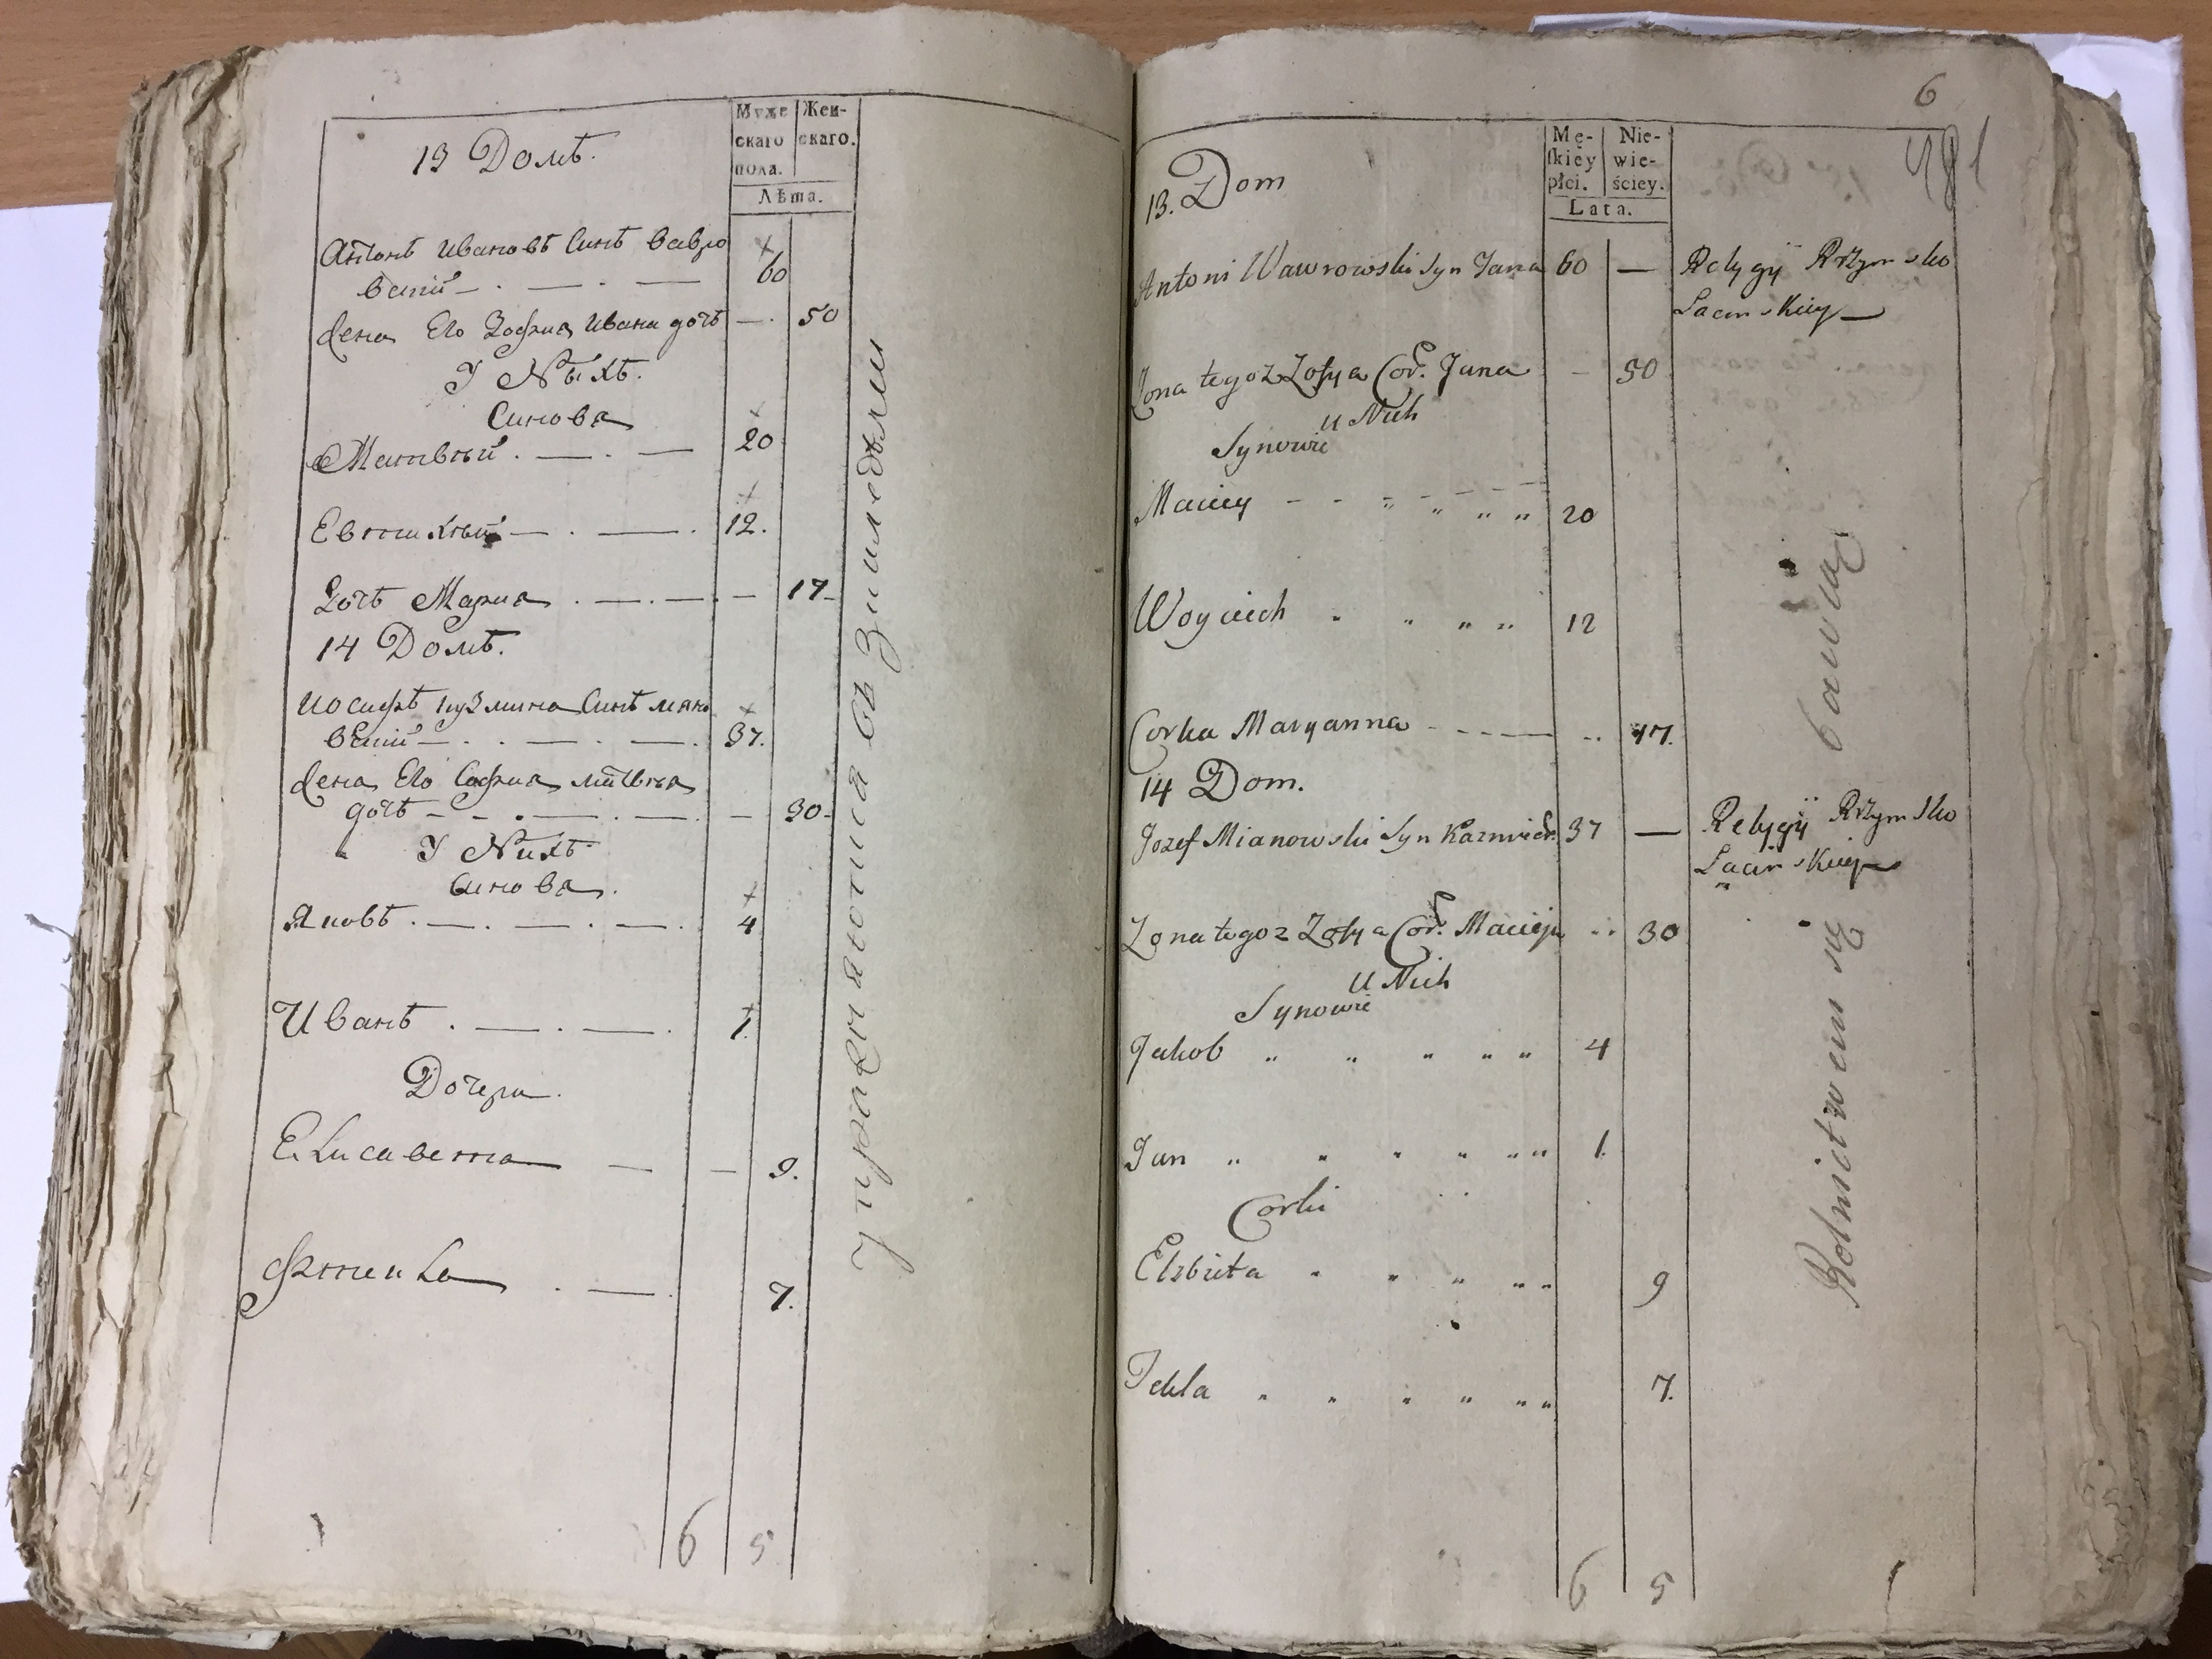 Муже
скаго
пола.
Жен-
скаго.
Лѣта.
13 Домъ.
Антонъ Ивановъ Синъ Вавро
вский 60
Жена Его Зофиа Ивана дочъ — 50
У Ныхъ.
Синовя
Матвѣй 20
Евтихѣй 12.
Дочъ Мариа — 17
14 Домъ.
Иосифъ Кузмина Синъ Меяно
вский 37.
Жена Его Софиа
дочъ — 30
У Нихъ
Синовя.
Яковъ 4
Иванъ 1.
Дочери.
Елисавета — 9.
Фтекла 7.
6 5
Упражняются въ Зимледѣли
6
481
Mę-
skiey
płci.
Nie-
wie-
ściey.
Lata.
13. Dom
Antoni Wawrowski Syn Jana 60 — Relygÿ Rzymsko
Łacinskiey
Zona tegoz Zofya Cor. Jana - 50
u Nich
Synowie
Maciey 20
Woyciech 12
Corka Maryanna 17.
14 Dom.
Jozef Mianowski Syn Kazmier. 37 — Relygÿ Rzymsko
Łacinskiey
Zona tegoz Zofya Cor. Macieja 30
U Nich
Synowie
Jakob 4
Jan 1.
Corki
Elzbieta 9
Tekla 7.
6 5
Rolnictwem się bawią